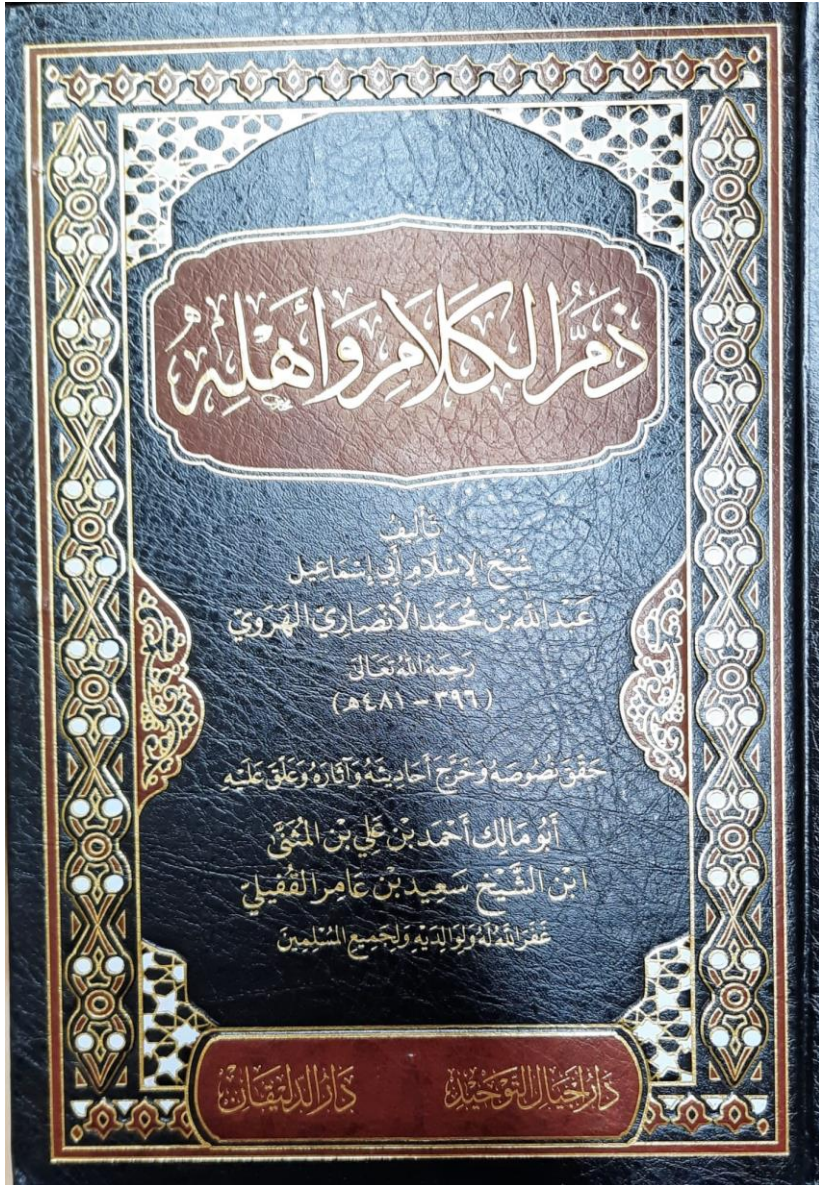 ذَمُّ الكَلَامِ وَأَهْلِهِ
تَأليفُ
شَيْخِ الإِسْلَامِ أَبِي إِسْمَاعِيل
عَبْدِ اللَّه بْنِ مُحَمَّد الأَنْصَارِيّ الهَرَوِيّ
رَحِمَهُ اللهُ تَعَالَى
(٣٩٦ - ٤٨١ هـ)
حَقَّقَ نُصُوصَهُ وَخَرَّجَ أَحَادِيثَهُ وَآثَارَهُ وَعَلَّقَ عَلَيْهِ
أَبُو مَالِك أَحْمَد بْنُ عَلِي بْنِ المُثَنَّى
ابْن الشَّيْخ سَعِيد بْن عَامِر القُفَيْلِيّ
غَفَرَ اللَّهُ لَهُ وَلِوَالِدَيْهِ وَلِجَمِيعِ المُسْلِمِينَ
دَارُ أَجْيَالِ التَّوْحِيدِ دَارُ الدَّلِيقَانْ